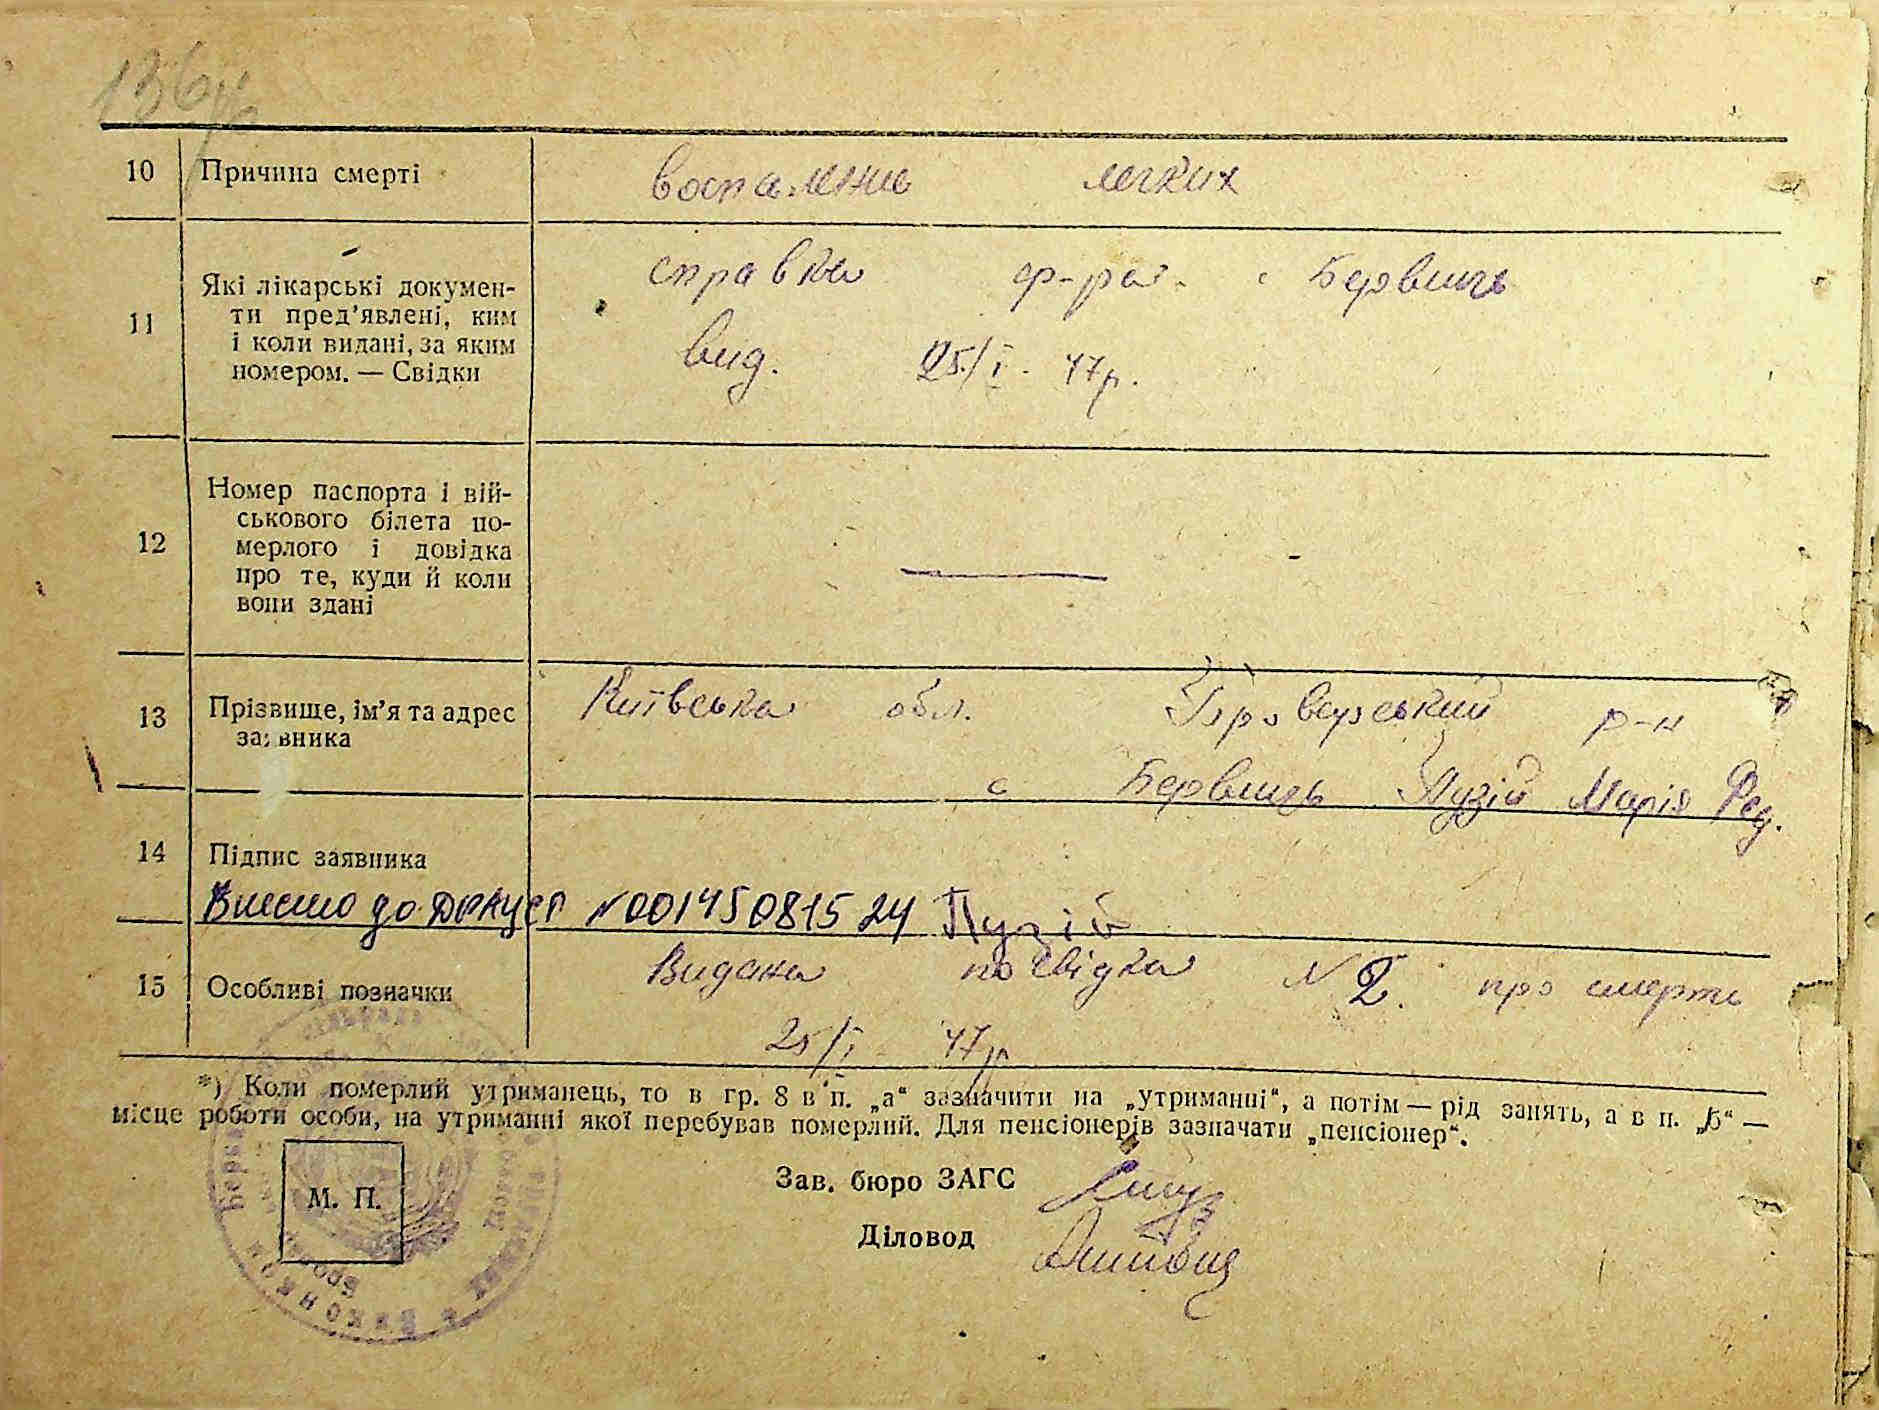 136
10 Причина смерті воспаление легких
11 Які лікарські докумен-
ти пред’явлені, ким
і коли видані, за яким
номером. — Свідки
справка ф-ра. с Бервиць
вид. 25/I. 47р.
12 Номер паспорта і вій-
ськового білета по-
мерлого і довідка
про те, куди й коли
вони здані
—
13 Прізвище, ім’я та адрес
заявника
Київська обл. Броварський р-н
с Бервиць Пузій Марія Фед.
14 Підпис заявника
Внесено до ДРАЦСГ №00145081524 Пузій
15 Особливі позначки
Видана посвідка № 2. про смерть
25/I 47р
*) Коли померлий утриманець, то в гр. 8 в п. „а“ зазначити на „утриманні“, а потім — рід занять, а в п. „б“ —
місце роботи особи, на утриманні якої перебував померлий. Для пенсіонерів зазначати „пенсіонер“.
М. П.
Зав. бюро ЗАГС
Діловод